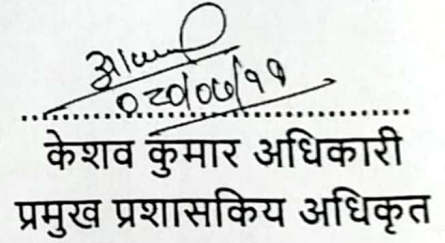 ०८०/०७/११
केशव कुमार अधिकारी
प्रमुख प्रशासकिय अधिकृत